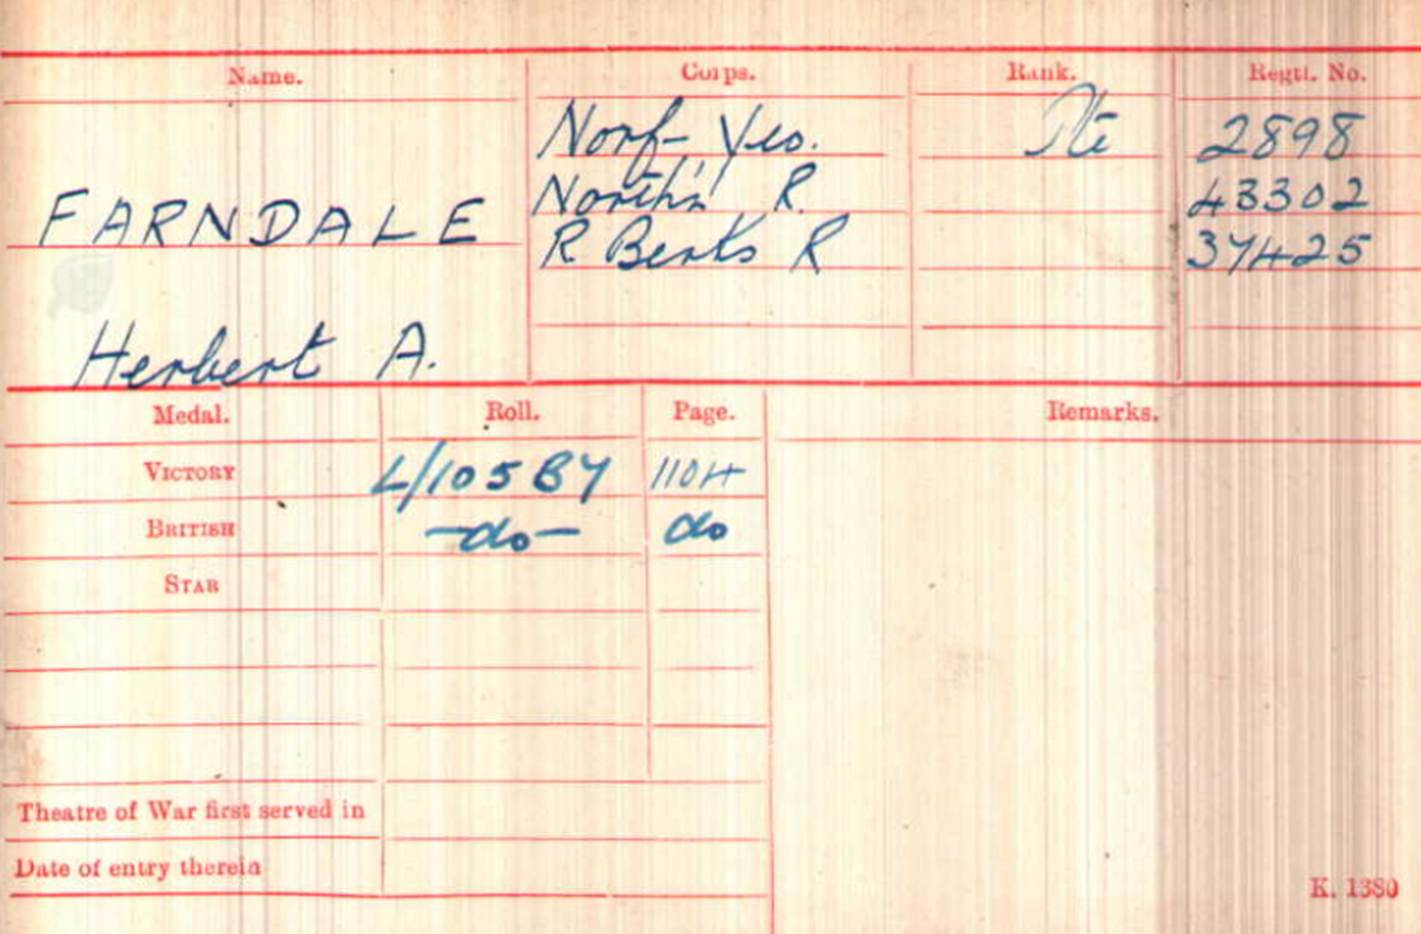 Name. Corps. Rank. Regtl. No.
Norf. Yeo. Pte 2898
FARNDALE North'n R. 43302
R Berks R 37425
Herbert A.
Medal. Roll. Page. Remarks.
VICTORY L/105B7 1104
BRITISH -do- do
STAR
Theatre of War first served in
Date of entry therein
K. 1380